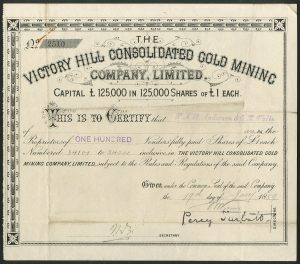 No 2510
THE
VICTORY HILL CONSOLIDATED GOLD MINING
COMPANY, LIMITED.
CAPITAL £125,000 IN 125,000 SHARES OF £1 EACH.
THIS IS TO CERTIFY that
Proprietor of ONE HUNDRED Vendors fully paid Shares of £1 each
Numbered to inclusive, in THE VICTORY HILL CONSOLIDATED GOLD
MINING COMPANY, LIMITED, subject to the Rules and Regulations of the said Company.
Given under the Common Seal of the said Company
the 19th day of 18
Percy Tarbutt
DIRECTORS
SECRETARY